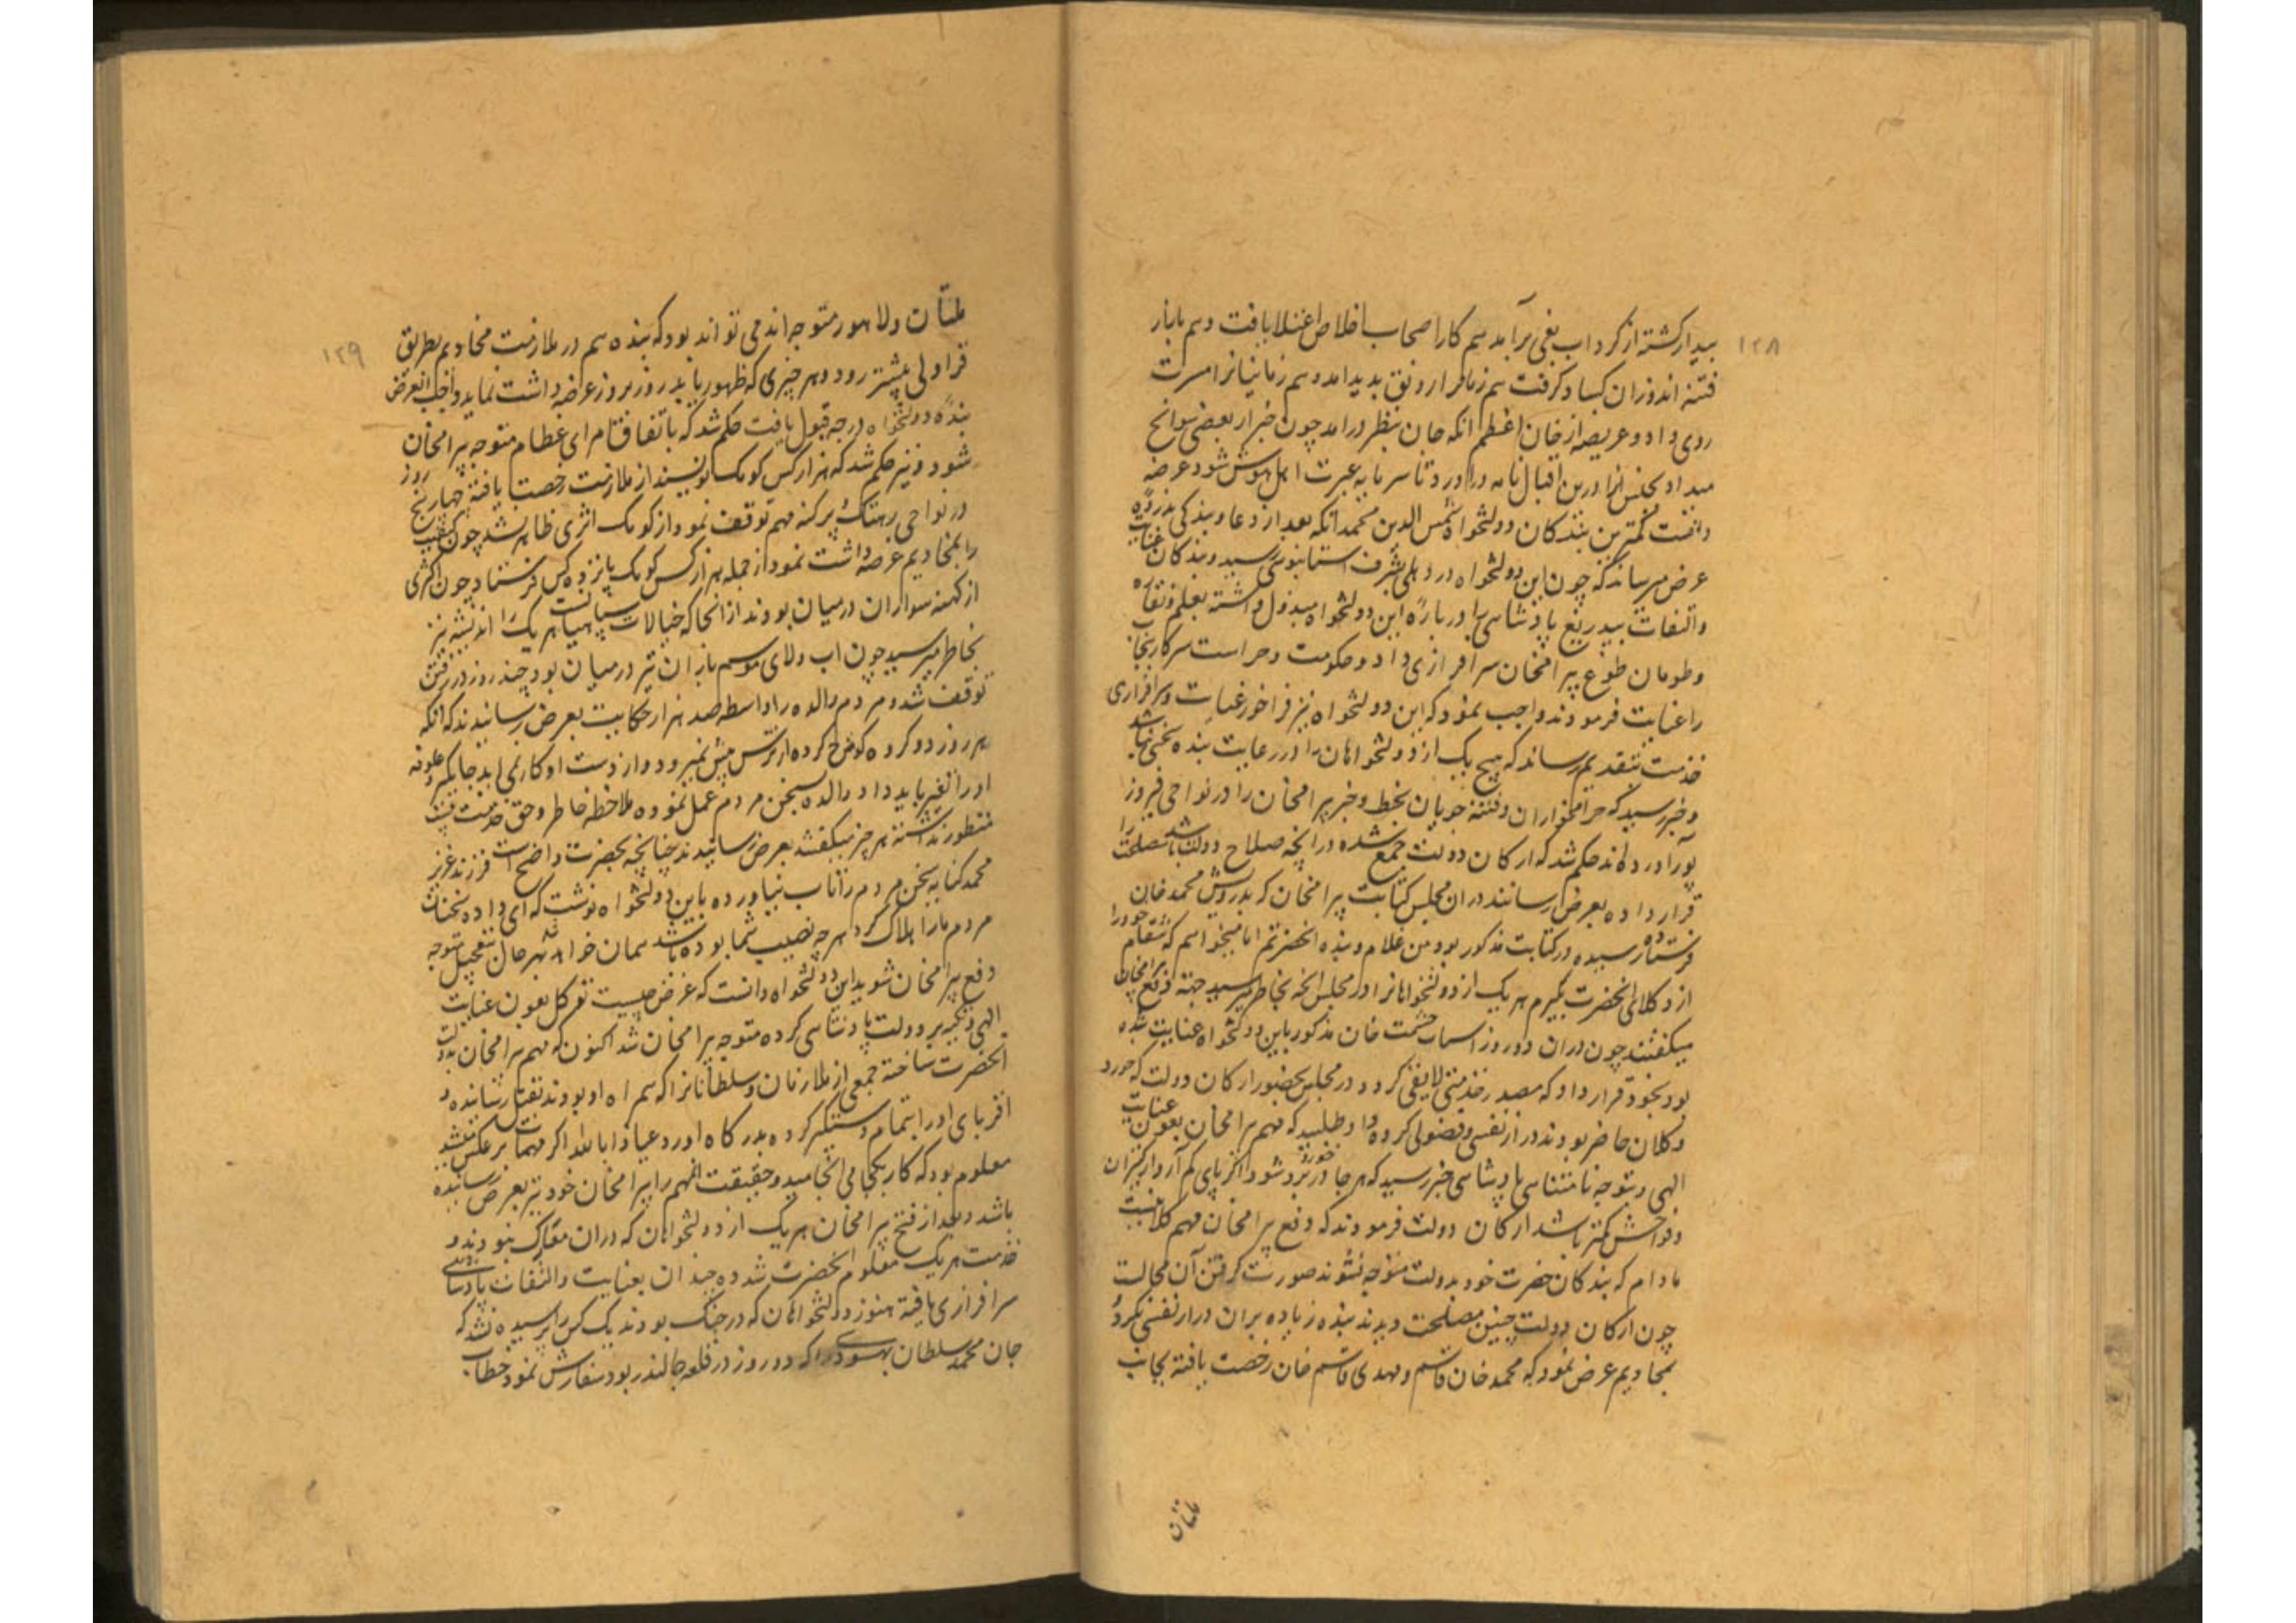 ۱۲۸
بیدار کشته از کرداب بغی برآمد هم کار اصحاب اخلاص اعتلا یافت و هم بازار
فتنه اندوزان کساد کرفت هم زمانرا رونق بدید امد و هم زمانیانرا مسرت
روی داد و عریضه از خان اعظم اتکه خان بنظر درامد چون خبر از بعضی سوانح
میداد بجنس انرا درین اقبال نامه دراورد تا سرمایه عبرت اهل هوش شود عرضه
داشت کمترین بندکان دولتخواه شمس الدین محمد اتکه بعد از دعا و بندکی بذروه
عرض میرساند که چون این دولتخواه در دهلی بشرف استانبوسی رسید و بندکان عنایت
و التفات بیدریغ پادشاهی را درباره این دولتخواه مبذول داشته بعلم و نقاره
و طومان طوغ بیرامخان سرافرازی داد و حکومت و حراست سرکار پنجاب
را عنایت فرمودند واجب نمود که این دولتخواه نیز فراخور عنایت و سرافرازی
خدمت بتقدیم رساند که هیچ یک از دولتخواهان را در رعایت بنده سخنی نباشد
و خبر رسید که حرامخواران و فتنه جویان بخط و خبر بیرامخان را در نواحی فیروز
پور آورده اند حکم شد که ارکان دولت جمع شده در انچه صلاح دولت باشد مصلحت را
قرار داده بعرض رسانند دران مجلس کتابت بیرامخان که بدرویش محمد خان
فرستاده رسیده در کتابت مذکور بود من غلام و بنده انحضرتم اما میخواهم که انتقام خود را
از وکلای انحضرت بکیرم هر یک از دولتخواهانرا در مجلس انچه بخاطر میرسید جهته دفع بیرامخان
میکفتند چون دران دو روز اسباب حشمت خان مذکور باین دولتخواه عنایت شده
بود بخود قرار داد که مصدر خدمتی لایق کردد در مجلس بحضور ارکان دولت که خورد
و کلان حاضر بودند دراز نفسی و فضولی کرده داوطلبید که مهم بیرامخان بعون عنایت
الهی و توجه نامتناهی پادشاهی خبر رسید که هر جا در نبرد شود اکر پای کم آرد از کنیزان
و فواحش کمتر باشد ارکان دولت فرمودند که دفع بیرامخان مهم کلانیست
مادام که بندکان حضرت خود بدولت متوجه نشوند صورت کرفتن آن محالست
چون ارکان دولت چنین مصلحت دیدند بنده زیاده بران دراز نفسی نکرد و
بمخادیم عرض نمود که محمد خان قاسم و مهدی قاسم خان رخصت یافته بجانب
ملتان
۱۲۹
ملتان و لاهور متوجه اند می تواند بود که بنده هم در ملازمت مخادیم بطریق
قراولی پیشتر رود و هر چیزی که ظهور یابد روز بروز عرضه داشت نماید واجب العرض
بنده دولتخواه درجه قبول یافت حکم شد که باتفاق امرای عظام متوجه بیرامخان
شود و نیز حکم شد که هزار کس کومک نویسند از ملازمت رخصت یافته چهار پنج روز
در نواحی رهتک پرکنه مهم توقف نمود از کومک اثری ظاهر نشد چون
را بمخادیم عرضه داشت نمود از جمله هزار کس کومک پانزده کس فرستاد چون اکثری
از کهنه سواران درمیان بودند از انجا که خیالات سپاهیانست هر یک را اندیشه نیز
بخاطر میرسید چون اب و لای موسم باران نیز درمیان بود چند روز در رفتن
توقف شد و مردم والده را واسطه صد هزار حکایت بعرض رسانیدند که اتکه
هر روز دو کروه کوچ کرده از ترس پیش نمیرود و از دست او کار نمی اید جایکیر و علوفه
او را تغیر باید داد والده بسخن مردم عمل نموده ملاحظه خاطر و حق خدمت
منظور نداشته هر چیز میکفتند بعرض رسانیدند چنانچه بحضرت واضح است فرزند عزیز
محمد کتابه بسخن مردم را تاب نیاورده باین دولتخواه نوشت که ای دادم سخنان
مردم مارا هلاک کرد هر چه نصیب شما بوده باشد همان خواهد شد بهر حال بتعجیل متوجه
دفع بیرامخان شوید این دولتخواه دانست که غرض چیست توکل بعون عنایت
الهی و تکیه بر دولت پادشاهی کرده متوجه بیرامخان شد اکنون که مهم بیرامخان بدولت
انحضرت ساخته جمعی از ملازمان و سلطانانرا که همراه او بودند بقتل رسانیده و
اقربای او را بتمام دستکیر کرده بدرکاه اورد عیاذا بالله اکر مهمات برعکس میشد
معلوم بود که کار بکجا می انجامید و حقیقت انمهم را بیرامخان خود نیز بعرض رسانیده
باشد و بعد از فتح بیرامخان هر یک از دولتخواهان که دران معرک نبودند و
خدمت هر یک معلوم انحضرت شده چندان بعنایت و التفات پادشاهی
سرافرازی یافته هنوز دولتخواهان که در جنک بودند یک کس را پرسیده نشد که
جان محمد سلطان بهسودی را که دو روز در قلعه جالندر بود سفارش نمود خطاب